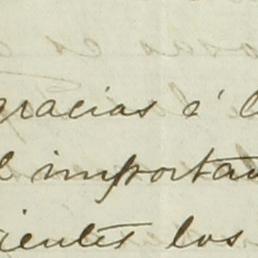 gracias á
l importa
ientes los